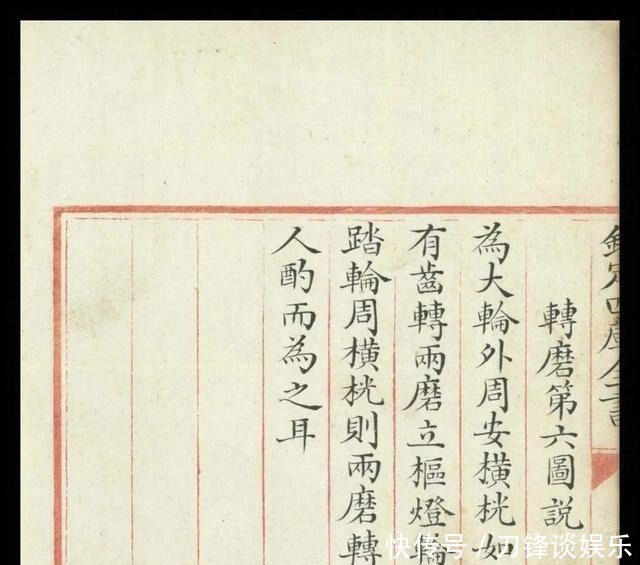 欽定四庫全書
轉磨第六圖説
為大輪外周安横桄如
有齒轉兩磨立樞燈輪
踏輪周横桄則兩磨轉
人酌而為之耳
快传号/刀锋谈娱乐